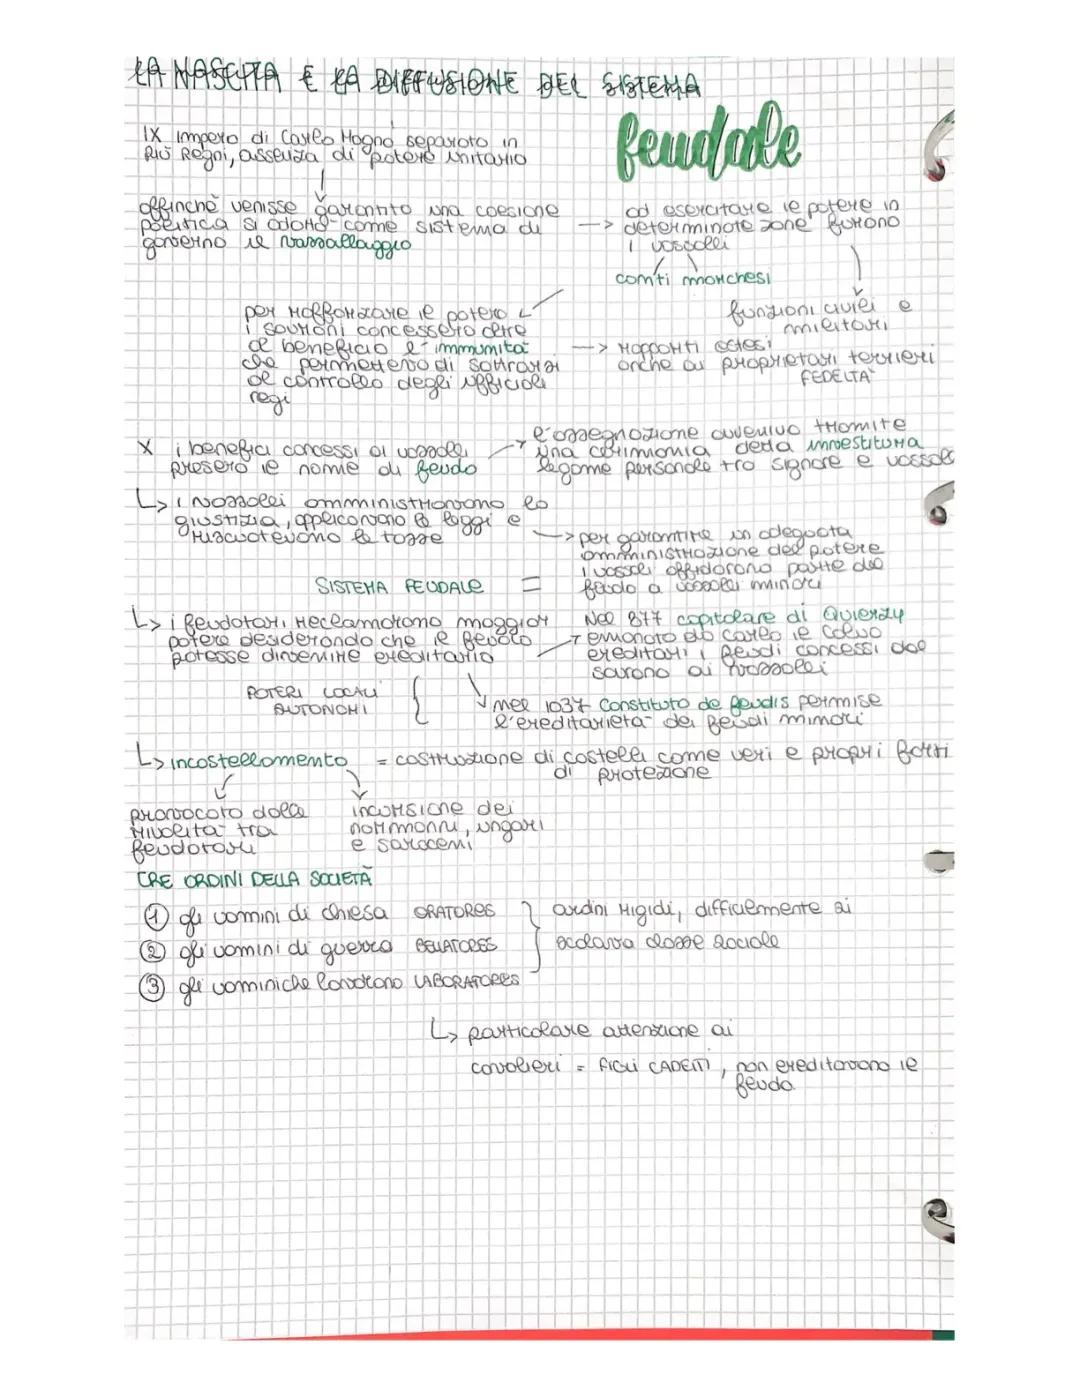 LA NASCITA E LA DIFFUSIONE DEL SISTEMA
feudale
IX Impero di Carlo Magno separato in
più Regni, assenza di potere unitario
affinchè venisse garantito una coesione
politica si adottò come sistema di
governo il vassallaggio
-> ad esercitare il potere in
determinate zone furono
i vassalli
comiti marchesi
funzioni civili e
militari
per rafforzare il potere
i sovrani concessero oltre
al beneficio l'immunità
che permetteva di sottrarsi
al controllo degli ufficiali
regi
-> rapporti estesi
anche ai proprietari terrieri
FEDELTA'
X i benefici concessi ai vassalli
presero il nome di feudo
l'assegnazione avveniva tramite
una cerimonia detta investitura
legame personale tra signore e vassallo
↳ i vassalli amministravano la
giustizia, applicavano le leggi e
riscuotevano le tasse
-> per garantire un adeguata
amministrazione del potere
i vassalli affidarono parte del
feudo a vassalli minori
SISTEMA FEUDALE =
↳ i feudatari reclamarono maggior
potere desiderando che il feudo
potesse divenire ereditario
Nel 877 capitolare di Quierzy
emanato da Carlo il Calvo
ereditari i feudi concessi dal
sovrano ai vassalli
POTERI LOCALI
AUTONOMI {
nel 1037 Constituto de feudis permise
l'ereditarietà dei feudi minori
↳ incastellamento = costruzione di castelli come veri e propri forti
di protezione
provocato dalle
rivolita tra
feudatari
incursione dei
normanni, ungari
e saraceni
TRE ORDINI DELLA SOCIETÀ
① gli uomini di chiesa ORATORES
② gli uomini di guerra BELLATORES
③ gli uomini che lavorano LABORATORES
} ordini rigidi, difficilmente si
scalava classe sociale
↳ particolare attenzione ai
cavalieri = FIGLI CADETTI, non ereditavano il
feudo.